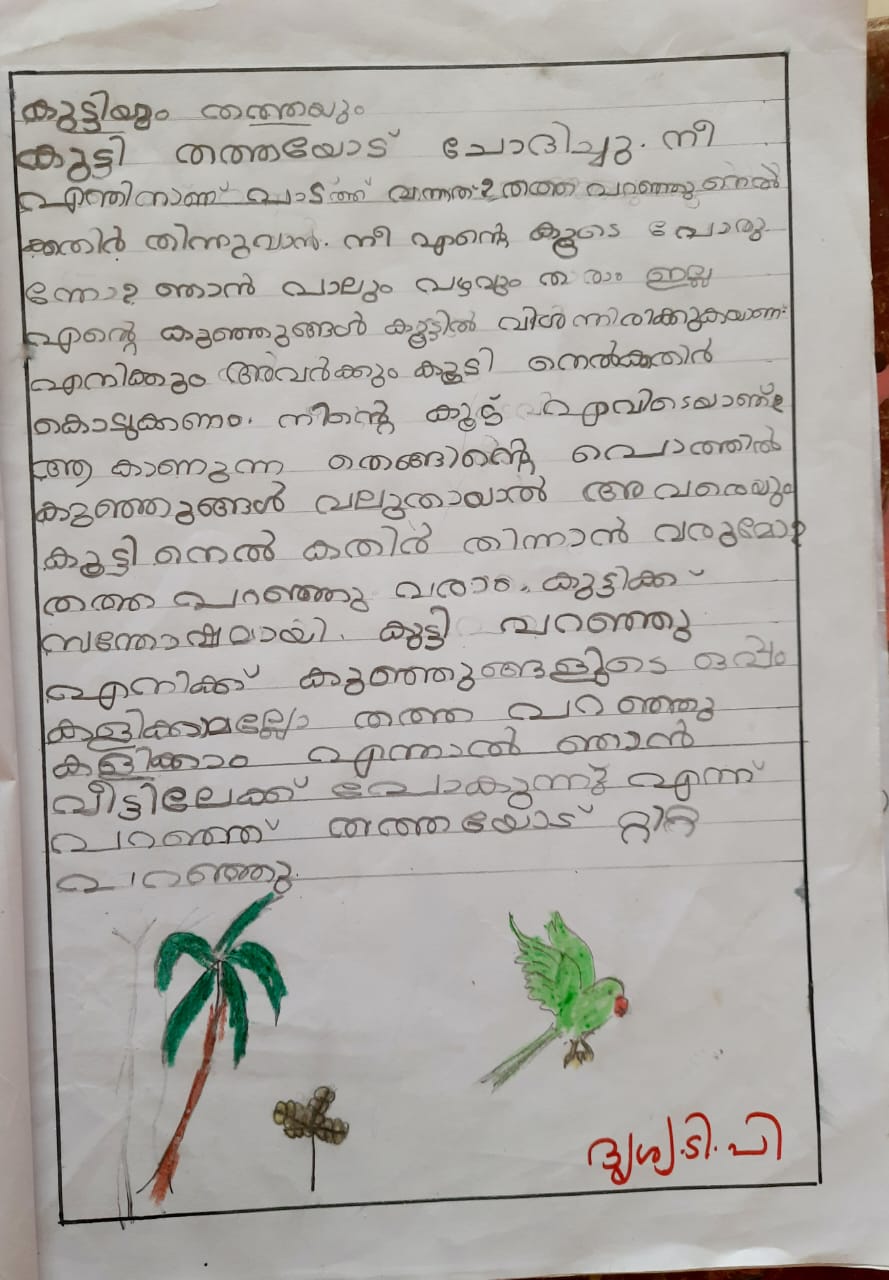 കുട്ടിയും തത്തയും
കുട്ടി തത്തയോട് ചോദിച്ചു. നീ
എന്തിനാണ് പാടത്ത് വന്നത്? തത്ത പറഞ്ഞു നെൽ
ക്കതിർ തിന്നുവാൻ. നീ എന്റെ കൂടെ പോരു
ന്നോ? ഞാൻ പാലും പഴവും തരാം ഇല്ല
എന്റെ കുഞ്ഞുങ്ങൾ കൂട്ടിൽ വിശന്നിരിക്കുകയാണ്.
എനിക്കും അവർക്കും കൂടി നെൽകതിർ
കൊടുക്കണം. നിന്റെ കൂട് എവിടെയാണ്?
ആ കാണുന്ന തെങ്ങിന്റെ പൊത്തിൽ
കുഞ്ഞുങ്ങൾ വലുതായാൽ അവരെയും
കൂട്ടി നെൽ കതിർ തിന്നാൻ വരുമോ?
തത്ത പറഞ്ഞു വരാം. കുട്ടിക്ക്
സന്തോഷമായി. കുട്ടി പറഞ്ഞു
എനിക്ക് കുഞ്ഞുങ്ങളുടെ ഒപ്പം
കളിക്കാമല്ലോ തത്ത പറഞ്ഞു
കളിക്കാം എന്നാൽ ഞാൻ
വീട്ടിലേക്ക് പോകുന്നു എന്ന്
പറഞ്ഞ് തത്തയോട് റ്റാറ്റ
പറഞ്ഞു.
ദൃശ്യ.ടി.പി